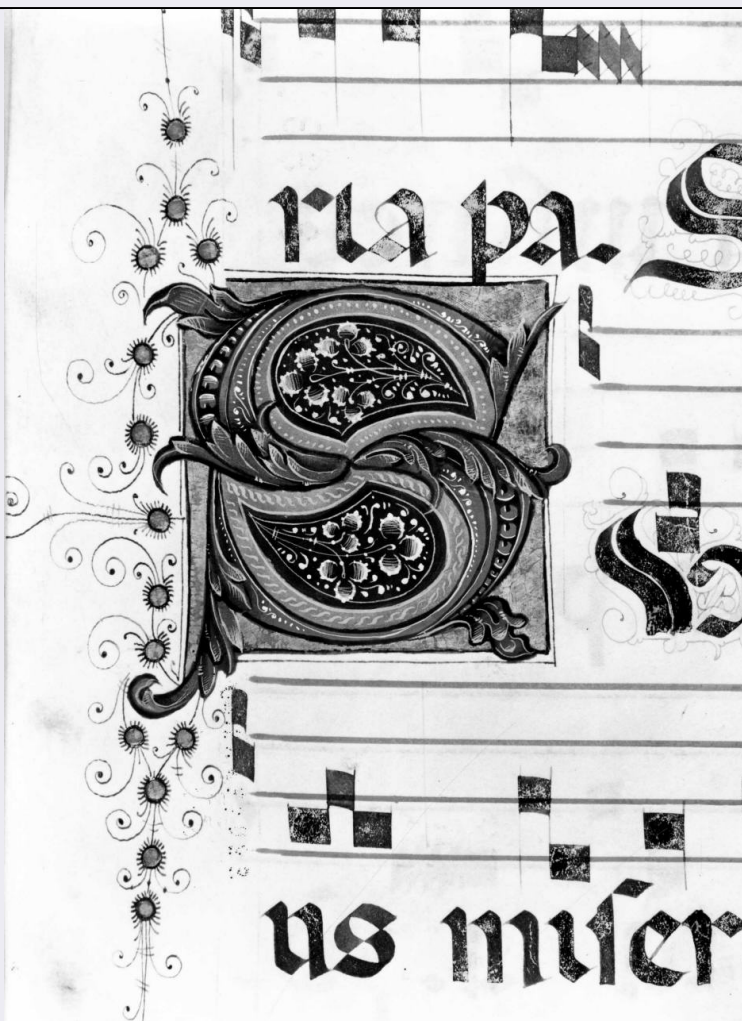 ria pa. S
S
us miser